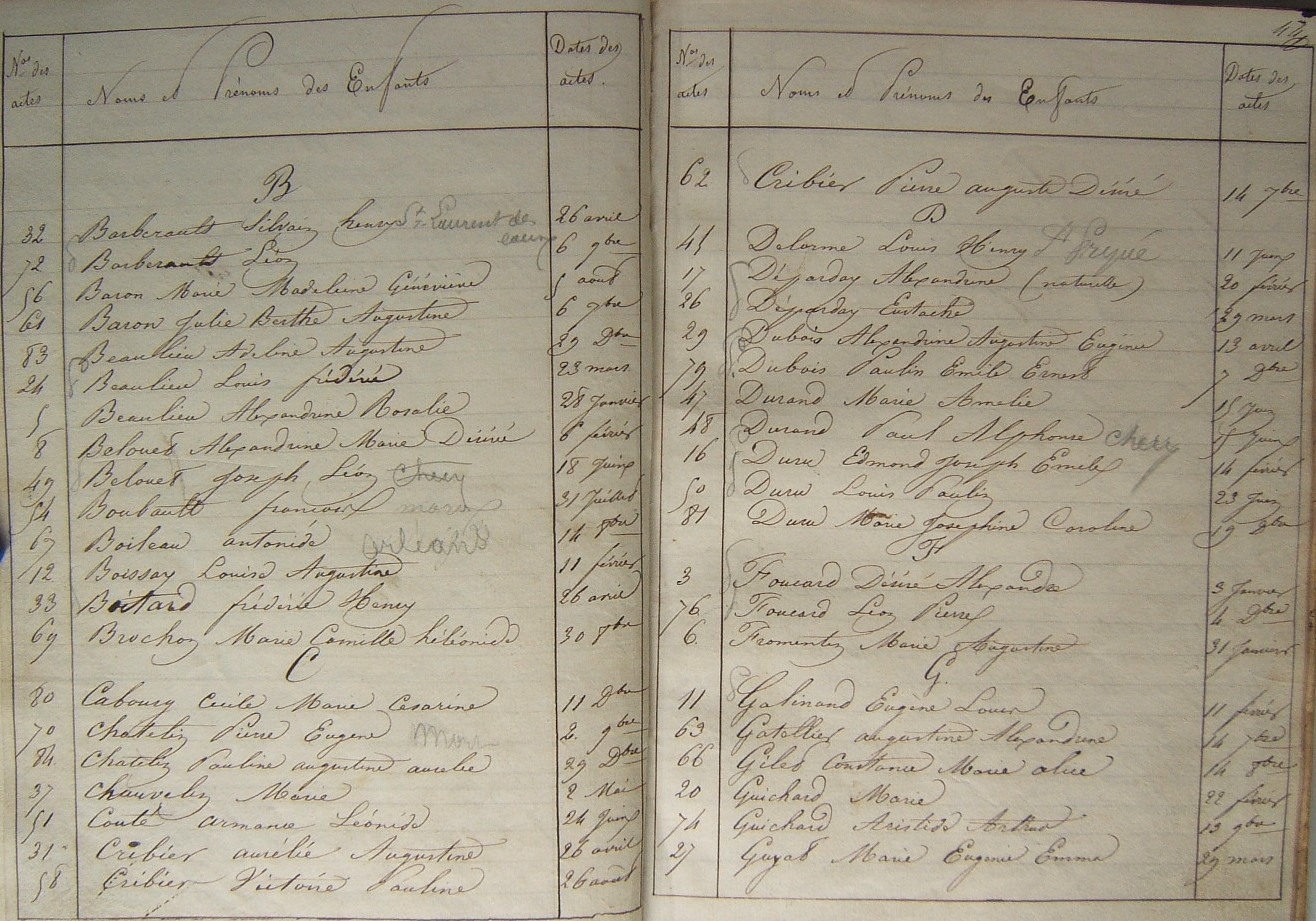 Nos des actes
Noms et Prénoms des Enfants
Dates des actes.
B
32 Barberault Silvain henry St Laurent des eaux 26 avril
72 Barberault Léon 6 9bre
56 Baron Marie Madeleine Géneviève 5 aout
61 Baron Julie Berthe Augustine 6 7bre
83 Beaulieu Adeline Augustine 29 Dbre
24 Beaulieu Louis frédéric 23 mars
5 Beaulieu Alexandrine Rosalie 28 Janvier
8 Belouet Alexandrine Marie Désiré 6 février
49 Belouet Joseph Léon Chery 18 Juin
54 Boubault francois 31 Juillet
67 Boileau antonide orléans 14 8bre
12 Boissay Louise Augustine 11 février
33 Boitard frédéric Henry 26 avril
69 Brochon Marie Camille héléonide 30 8bre
C
80 Cabourg Cecile Marie Césarine 11 Dbre
70 Chatelin Pierre Eugene 2. 9bre
84. Chatelin Pauline augustine aurelie 29 Dbre
37 Chauvelin Marie 2 Mai
51 Couté armance Léonide 24 Juin
31 Cribier aurélie Augustine 26 avril
58 Cribier Victoire Pauline 26 aout
47
Nos des actes
Noms et Prénoms des Enfants
Dates des actes
62 Cribier Pierre auguste Désiré 14 7bre
D
41 Delorme Louis Henry 11 Juin
17 Déjarday Alexandrine (naturelle) 20 février
26 Déjarday Eustache 29 mars
29 Dubois Alexandrine Augustine Eugénie 13 avril
79 Dubois Paulin Emile Ernest 7 Dbre
47 Durand Marie Amelie 15 Juin
48 Durand Paul Alphonse chery 17 Juin
16 Duru Edmond Joseph Emile 14 février
50 Duru Louis Paulin 23 Juin
81 Duru Marie Josephine Caroline 19 Dbre
F
3 Foucard Désiré Alexandre 3 Janvier
76. Foucard Léon Pierre 4 Dbre
6. Fromentin Marie Augustine 31 Janvier
G.
11 Galinand Eugène Louis 11 février
63 Gatellier augustine Alexandrine 14 7bre
66 Giles Constance Marie alice 14 8bre
20 Guichard Marie 22 février
74 Guichard Aristide Arthur 13 9bre
27 Guyat Marie Eugenie Emma 29 mars